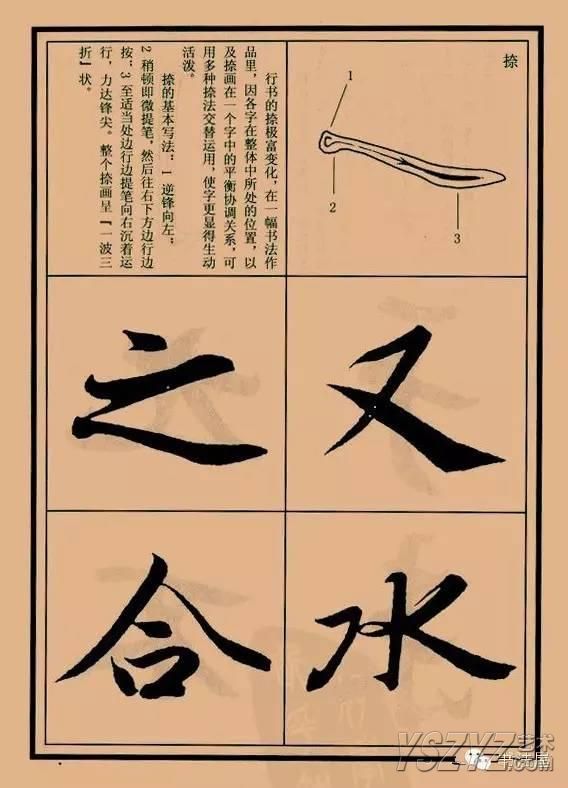 捺
1
2
3
行书的捺极富变化，在一幅书法作
品里，因各字在整体中所处的位置，以
及捺画在一个字中的平衡协调关系，可
用多种捺法交替运用，使字更显得生动
活泼。
捺的基本写法：1 逆锋向左；
2 稍顿即微提笔，然后往右下方边行边
按；3 至适当处边行边提笔向右沉着运
行，力达锋尖。整个捺画呈「一波三
折」状。
又
之
水
合
YSZYZ艺术
.COM
书法屋